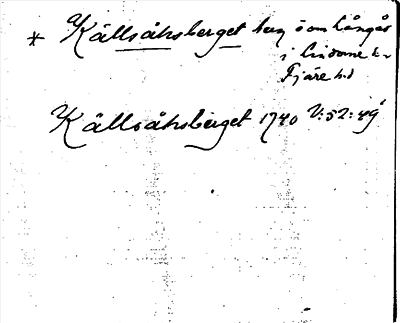 * Källsåhsberget berg ö om Långås
i Lindome k.
Fjäre hd
Källsåhsberget 1740 V:52:49